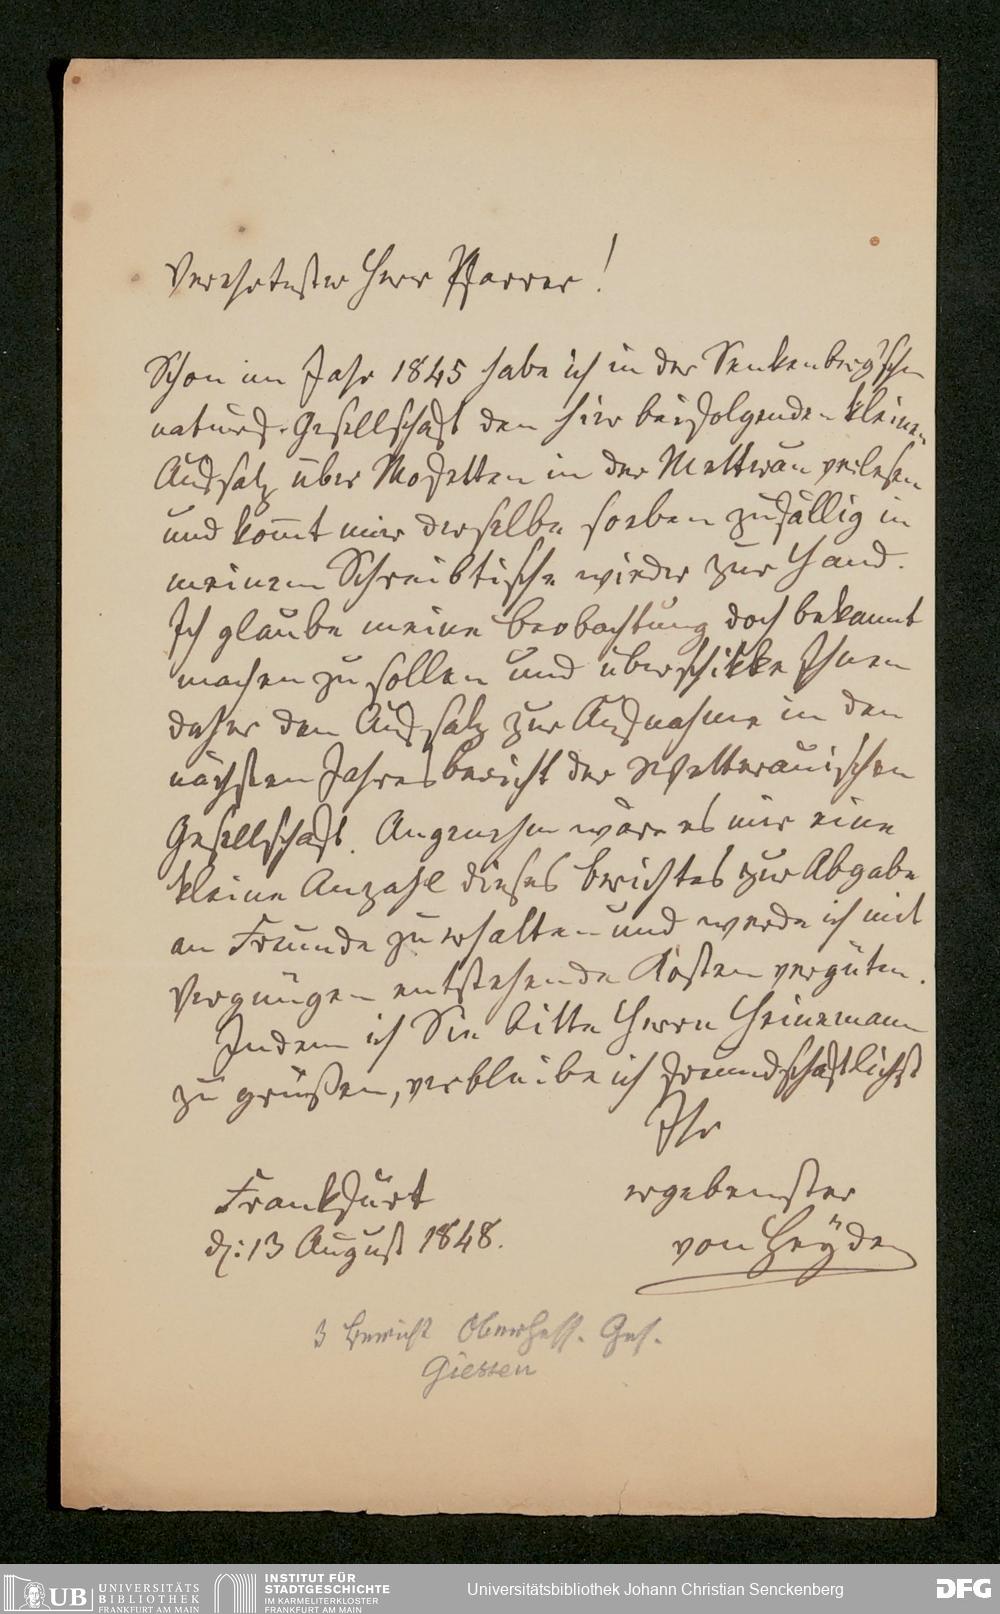 Verehrtester Herr Pfarrer!
Schon im Jahr 1845 habe ich in der Senkenberg'schen
naturf. Gesellschaft den hier beifolgenden kleinen
Aufsatz über Mofetten in der Wetterau verlesen
und kom̅t mir derselbe soeben zufällig in
meinem Schreibtische wieder zur Hand.
Ich glaube meine Beobachtung doch bekannt
machen zu sollen und überschikke Ihnen
daher den Aufsatz zur Aufnahme in den
nächsten Jahresbericht der Wetterauischen
Gesellschaft. Angenehm wäre es mir eine
kleine Anzahl dieses Berichtes zur Abgabe
an Freunde zu erhalten und werde ich mit
Vergnügen entstehende Kosten vergüten.
Indem ich Sie bitte Herrn Heinemann
zu grüßen, verbleibe ich freundschaftlichst
Ihr
Frankfurt ergebenster
d: 13 August 1848. von Heÿden
3 Bericht Oberhess. Ges.
Giessen
UB UNIVERSITÄTS
BIBLIOTHEK
FRANKFURT AM MAIN
INSTITUT FÜR
STADTGESCHICHTE
IM KARMELITERKLOSTER
FRANKFURT AM MAIN
Universitätsbibliothek Johann Christian Senckenberg
DFG